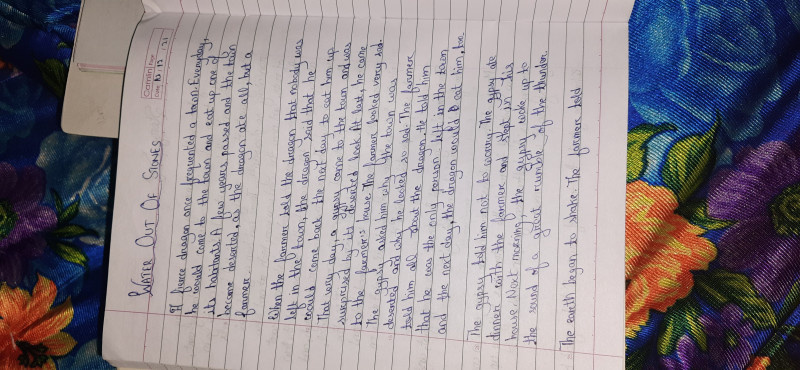 Gemini
Date 10 12 21
WATER OUT OF STONES
A fierce dragon once frequented a town. Everyday,
he would come to the town and eat up one of
its habitants. A few years passed and the town
become deserted, as the dragon ate all, but a
farmer
When the farmer told the dragon that nobody was
left in the town, the dragon said that he
would come back the next day to eat him up.
That very day a gypsy came to the town and was
surprised by its deserted look. At last, he came
to the farmer's house. The farmer looked very sad.
The gypsy asked him why the town was
deserted and why he looked so sad. The farmer
told him all about the dragon. He told him
That he was the only person left in the town
and the next day, the dragon would eat him, too.
The gypsy told him not to worry. The gypsy ate
dinner with the farmer and slept in his
house. Next morning, the gypsy woke up to
the sound of a great rumble of the thunder.
The earth began to shake. The farmer told